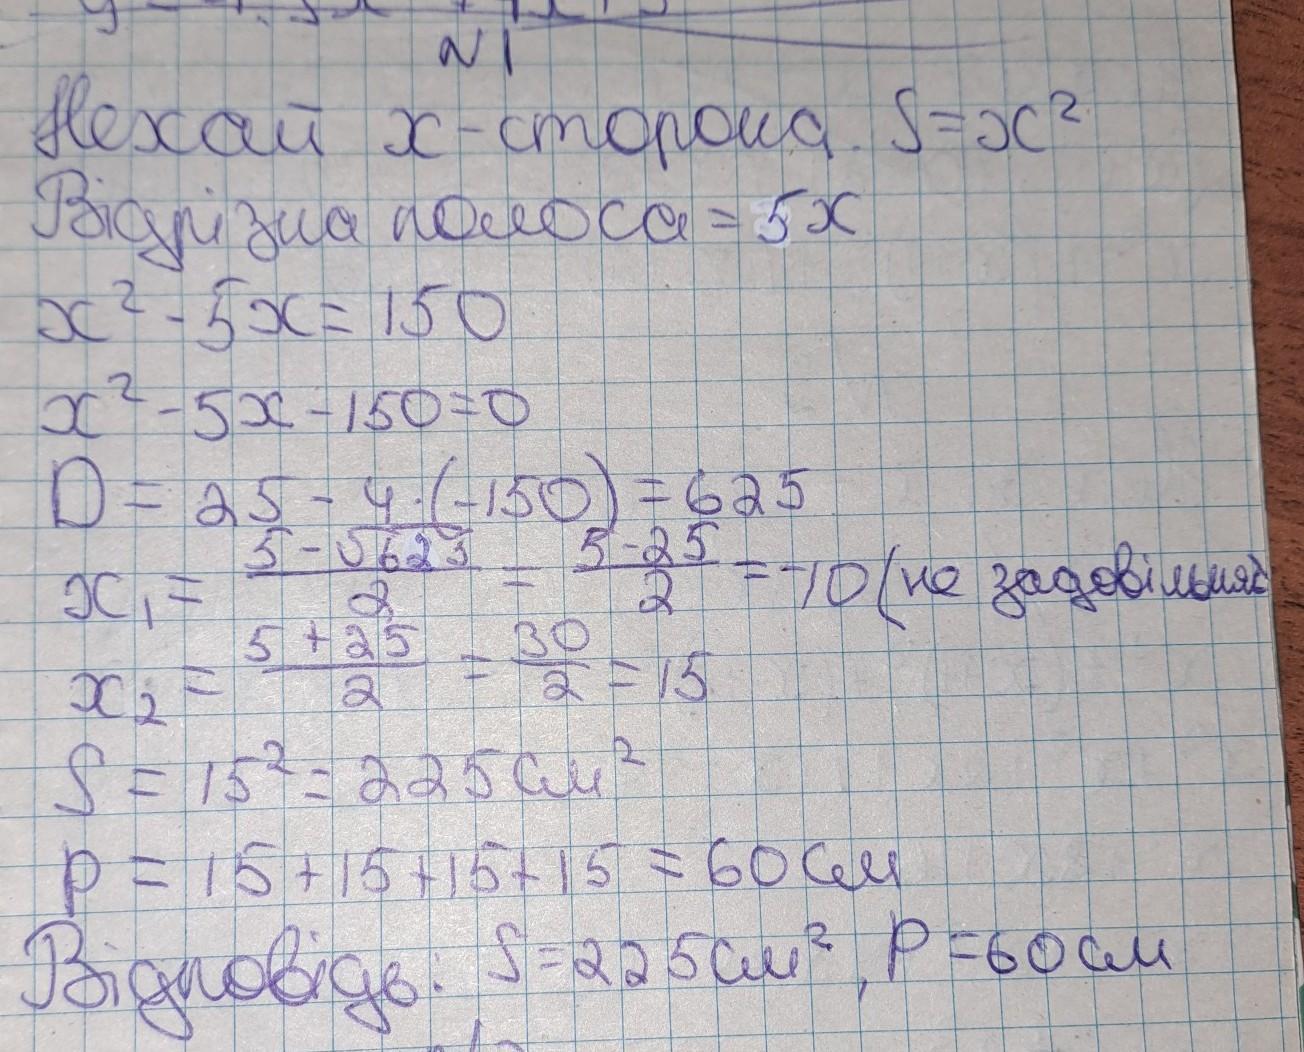 N1
Нехай x - сторона. S = x²
Відрізна полоса = 5x
x² - 5x = 150
x² - 5x - 150 = 0
D = 25 - 4·(-150) = 625
x₁ = (5 - √625)/2 = (5 - 25)/2 = -10 (не задовільняє
x₂ = (5 + 25)/2 = 30/2 = 15
S = 15² = 225 см²
P = 15 + 15 + 15 + 15 = 60 см
Відповідь: S = 225 см², P = 60 см